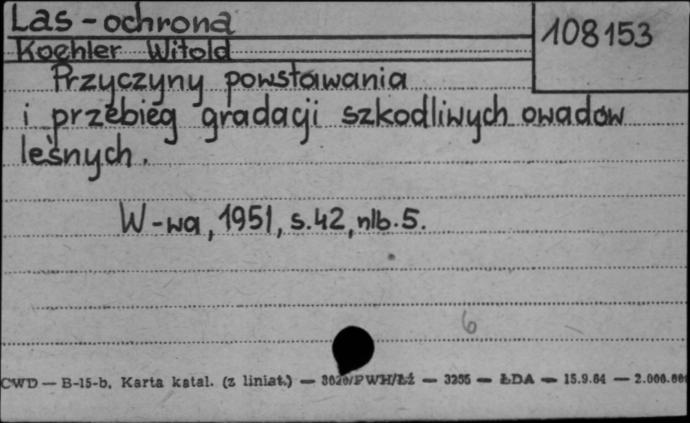 Las - ochrona
108153
Koehler Witold
Przyczyny powstawania
i przebieg gradacji szkodliwych owadów
leśnych.
W-wa, 1951, s. 42, nlb. 5.
6
CWD — B-15-b. Karta katal. (z liniat.) — 3020/PWH/Łż — 3255 — ŁDA — 15.9.64 — 2.000.000